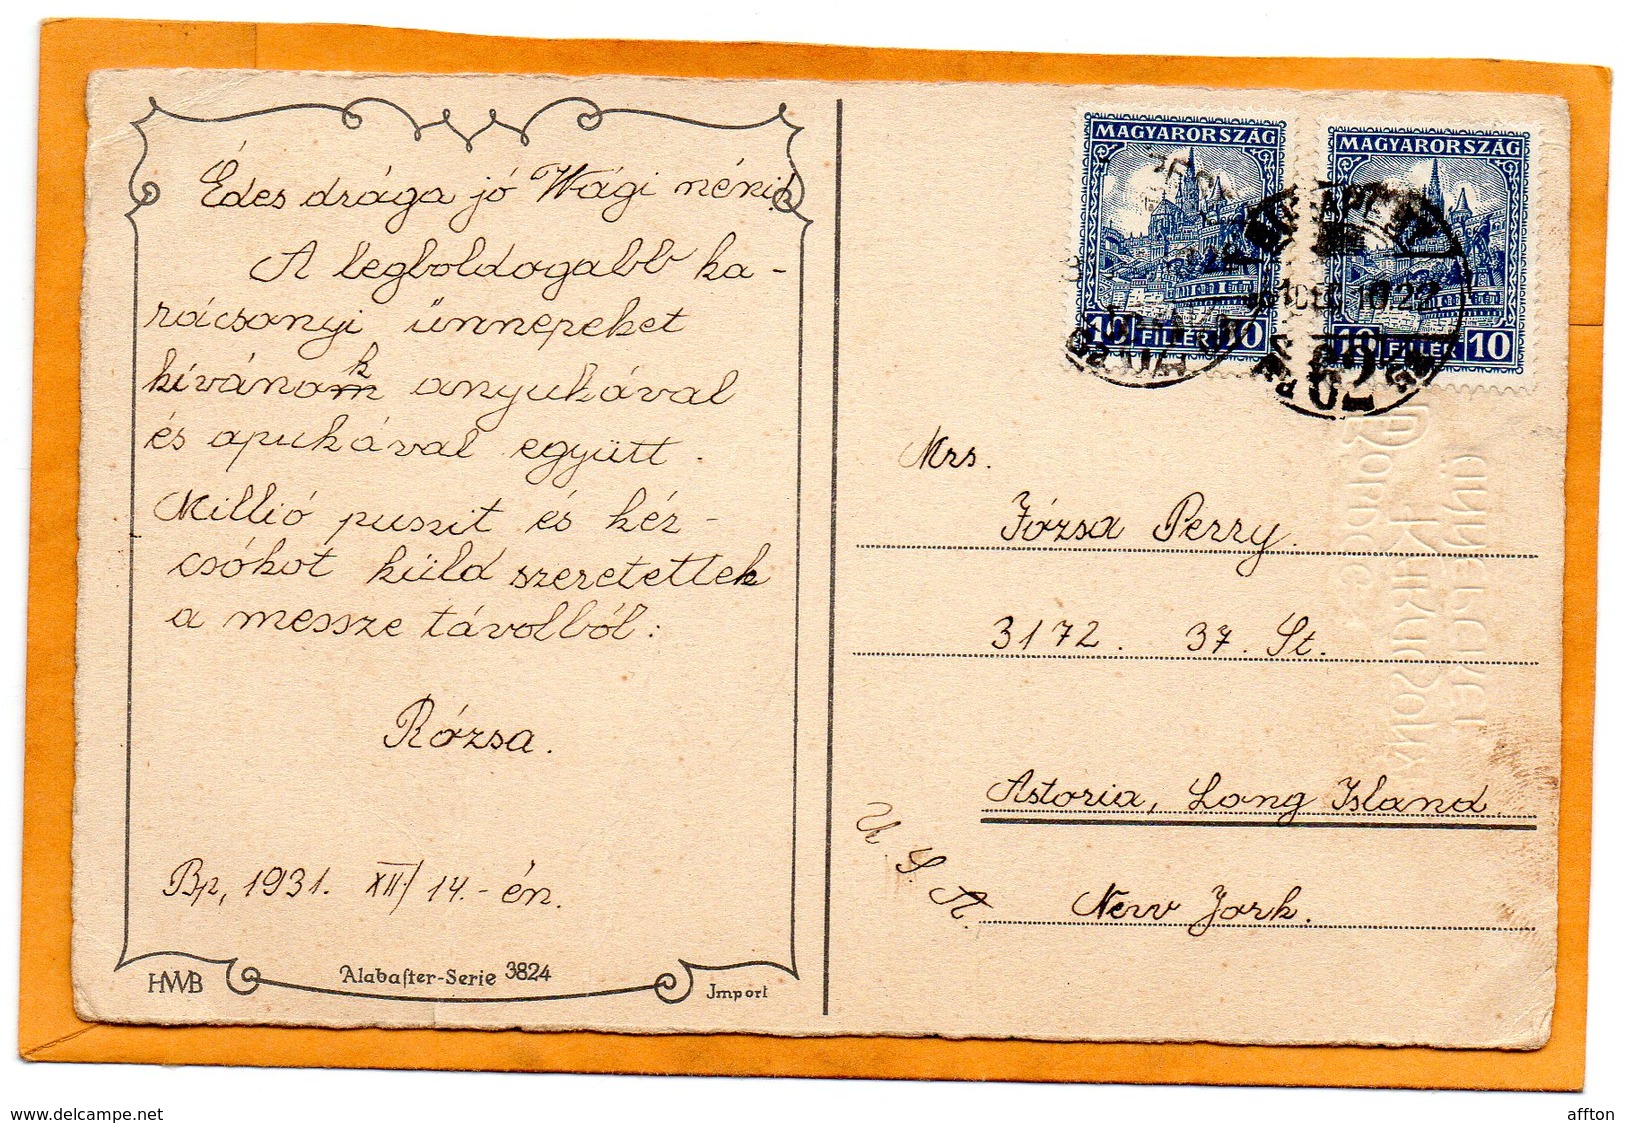 Édes drága jó Wági néni!
A legboldogabb ka-
rácsonyi ünnepeket
kívánok anyukával
és apukával együtt.
Millió puszit és kéz-
csókot küld szeretettek
a messze távolból:
Rózsa.
Bp, 1931. XII/14.-én.
HWB
Alabaster-Serie 3824
Import
MAGYARORSZÁG
10 FILLÉR 10
MAGYARORSZÁG
10 FILLÉR 10
BUDAPEST
DEC. 10.22
Mrs.
Józsa Perry.
3172. 37. St.
Astoria, Long Island
U.S.A.
New York.
BOLDOG
KARÁCSONYI
ÜNNEPEKET
delcampe.net
affton